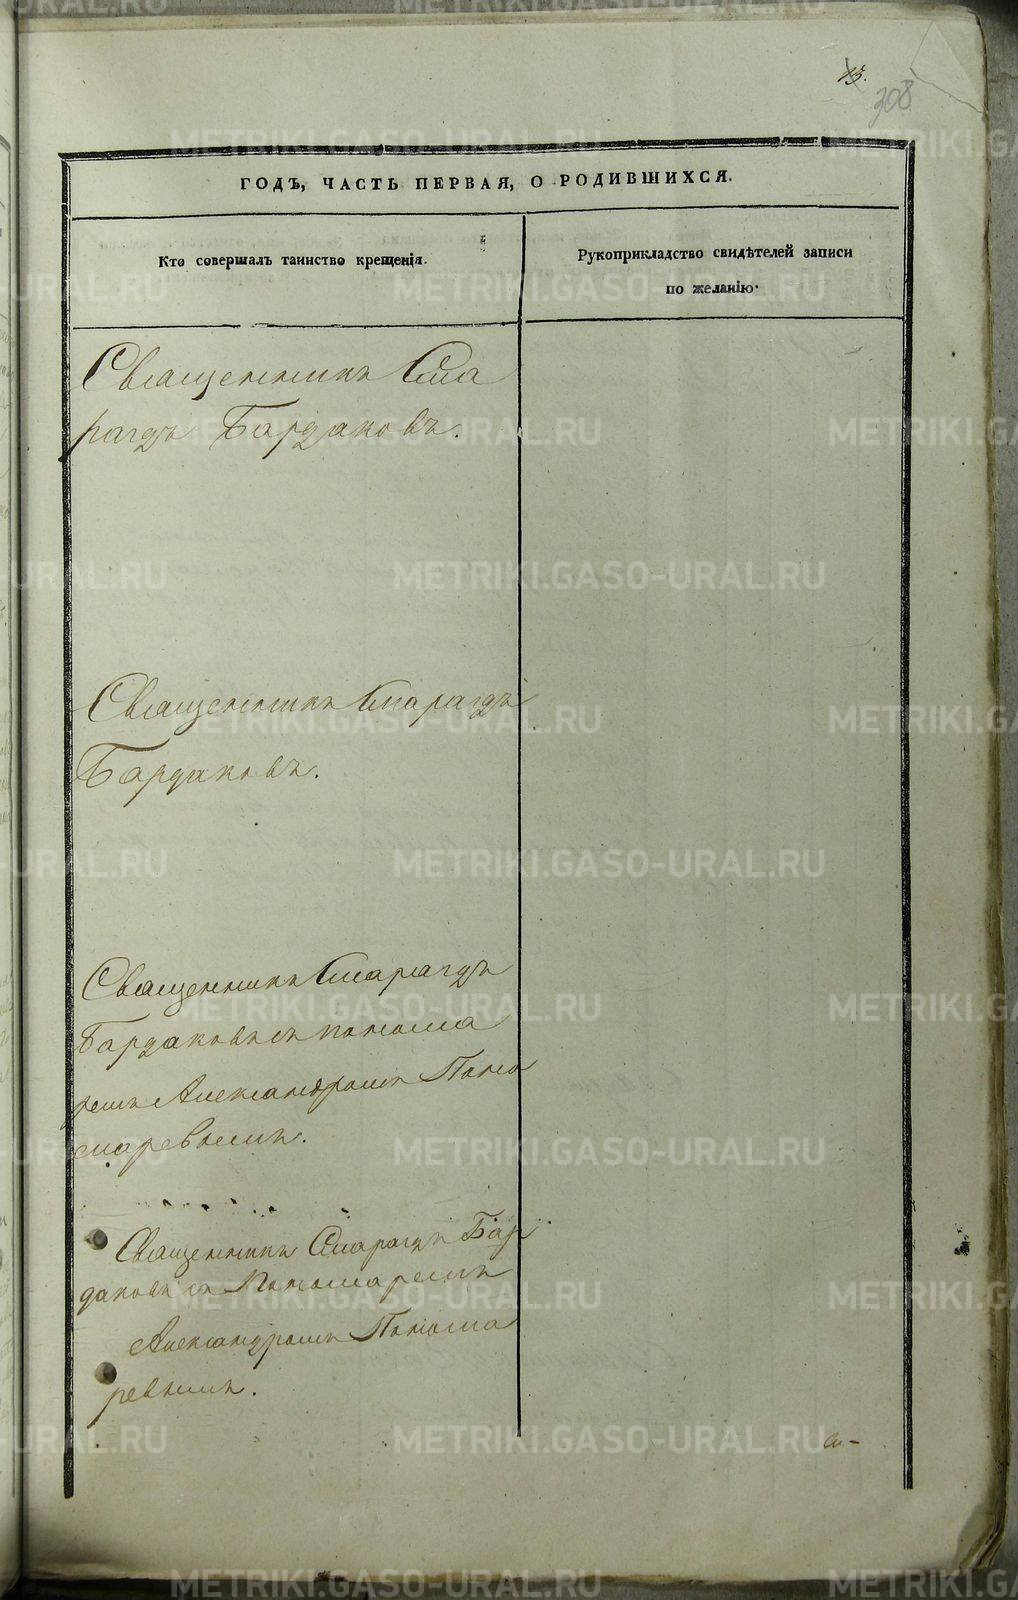 15.
308
ГОДЪ, ЧАСТЬ ПЕРВАЯ, О РОДИВШИХСЯ.
Кто совершалъ таинство крещенія.
Рукоприкладство свидѣтелей записи
по желанію.
Священникъ Сма
рагдъ Бардаковъ.
Священникъ Смарагдъ
Бардаковъ.
Священникъ Смарагдъ
Бардаковъ съ понома
ремъ Александромъ Поно
маревымъ.
Священникъ Смарагдъ Бар
даковъ съ Пономаремъ
Александромъ Понома
ревымъ.
METRIKI.GASO-URAL.RU